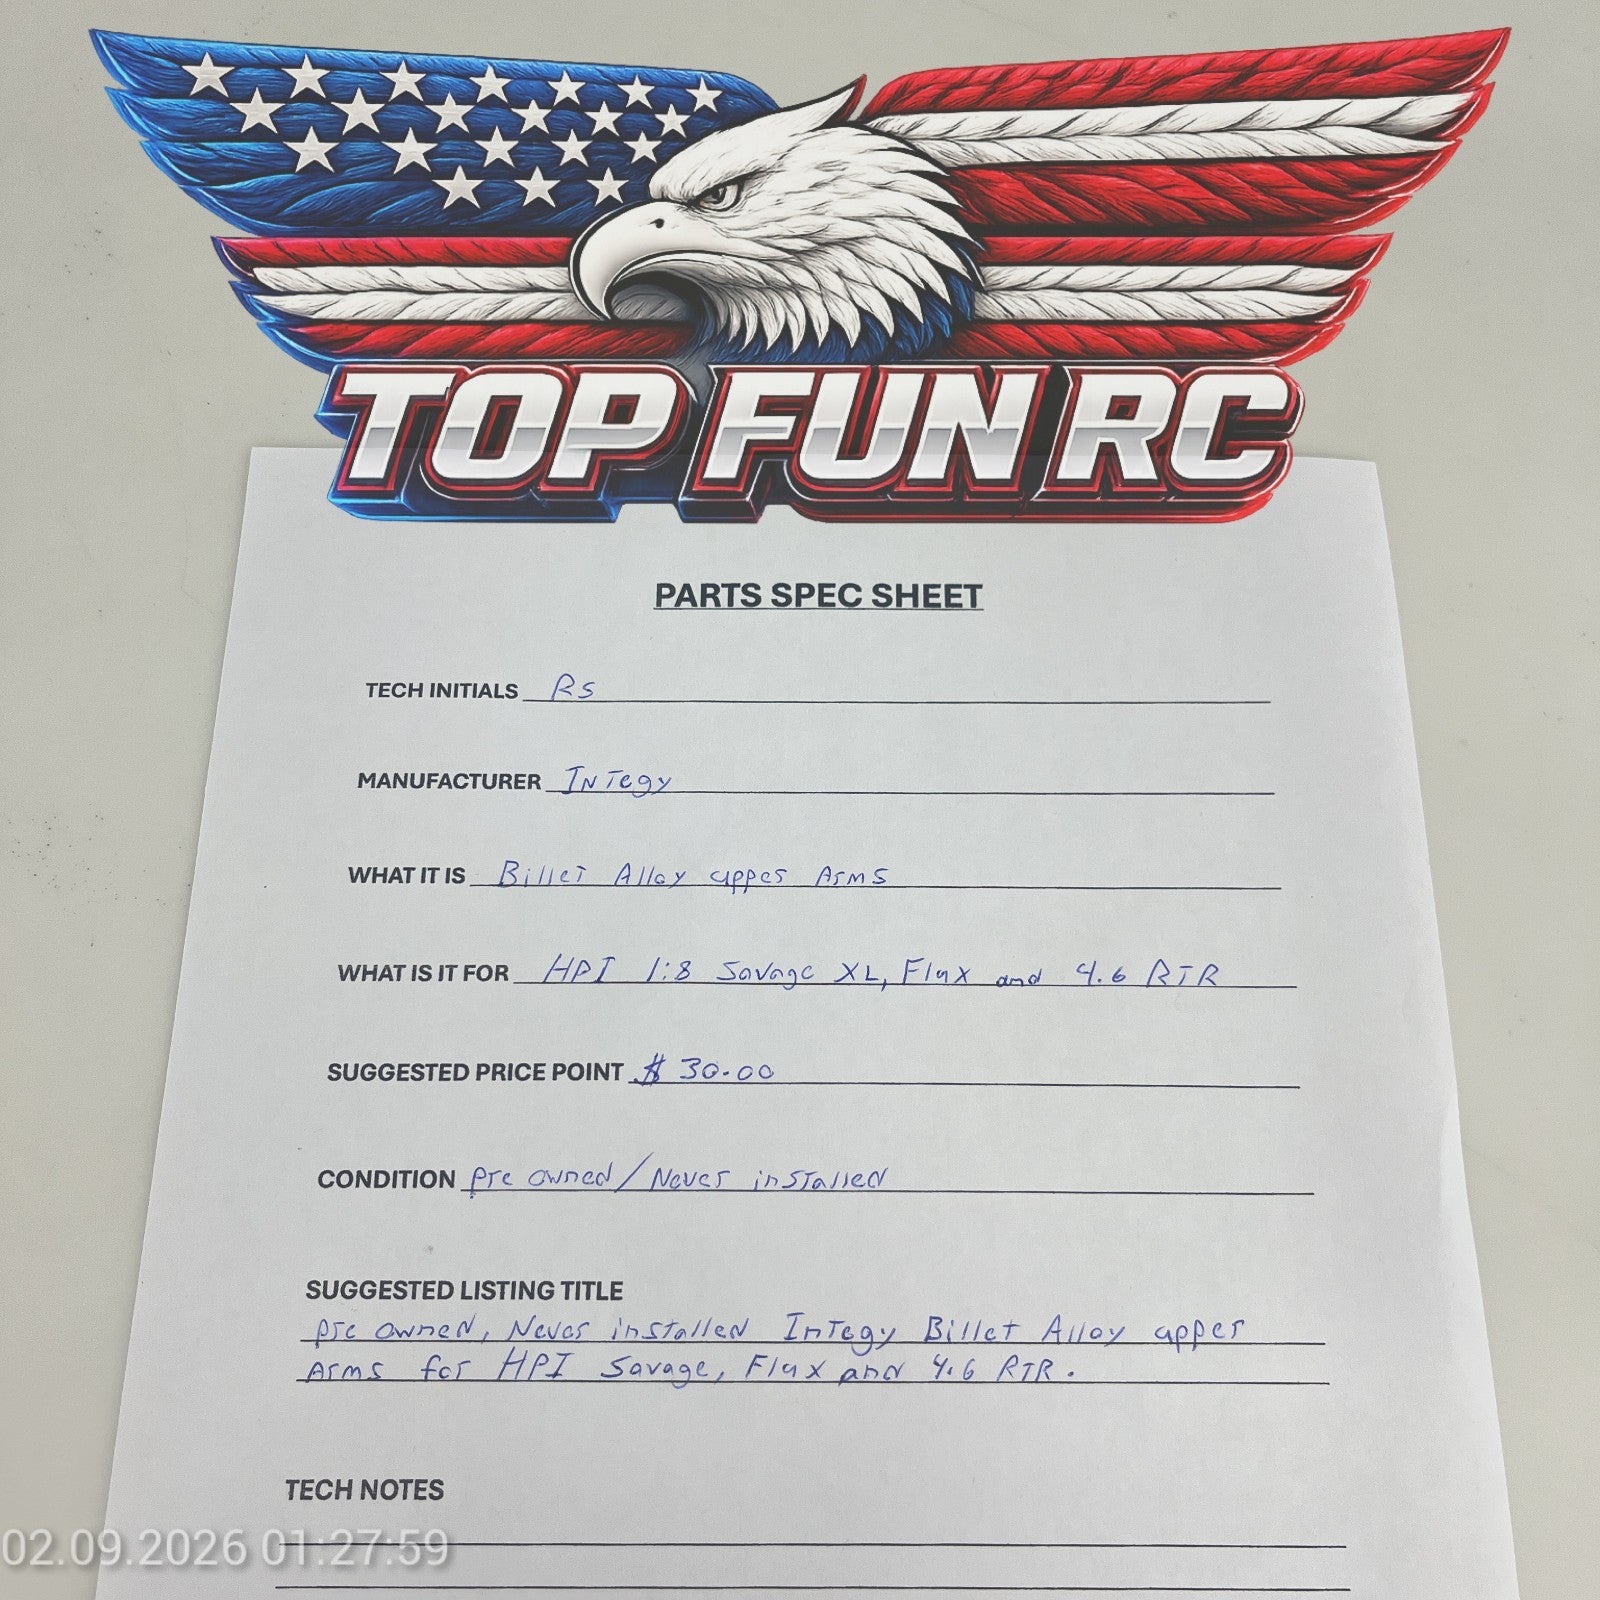 TOP FUN RC
PARTS SPEC SHEET
TECH INITIALS RS
MANUFACTURER INTegy
WHAT IT IS Billet Alloy upper Arms
WHAT IS IT FOR HPI 1:8 Savage XL, Flux and 4.6 RTR
SUGGESTED PRICE POINT $ 30.00
CONDITION pre owned / Never installed
SUGGESTED LISTING TITLE
pre owned, Never installed INTegy Billet Alloy upper
Arms for HPI Savage, Flux and 4.6 RTR.
TECH NOTES
02.09.2026 01:27:59